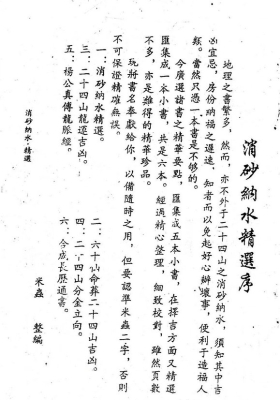 消砂納水精選序
地理之書繁多，然而，亦不外于二十四山之消砂納水，須知其中吉
凶宜忌，房份納福之遲速，知者而以免起好心辦壞事，便利于造福人
類。當然只憑一本書是不够的。
今廣選諸書之精華要點，匯集成五本小書，在擇吉方面又精選
匯集成一本小書，共是六本。經過精心整理，細致校對，雖然頁數
不多，亦是難得的精華珍品。
玩將書名奉獻給你，以備隨時之用，但要認準米蟲二字，否則
不可保證精確無誤。
一：消砂納水精選。
二：六十仙命葬二十四山吉凶。
三：二十四山龍運吉凶。
四：二十四山分金立向。
五：楊公真傳龍脈經。
六：合成長歷通書。
米蟲 整編
消砂納水精選